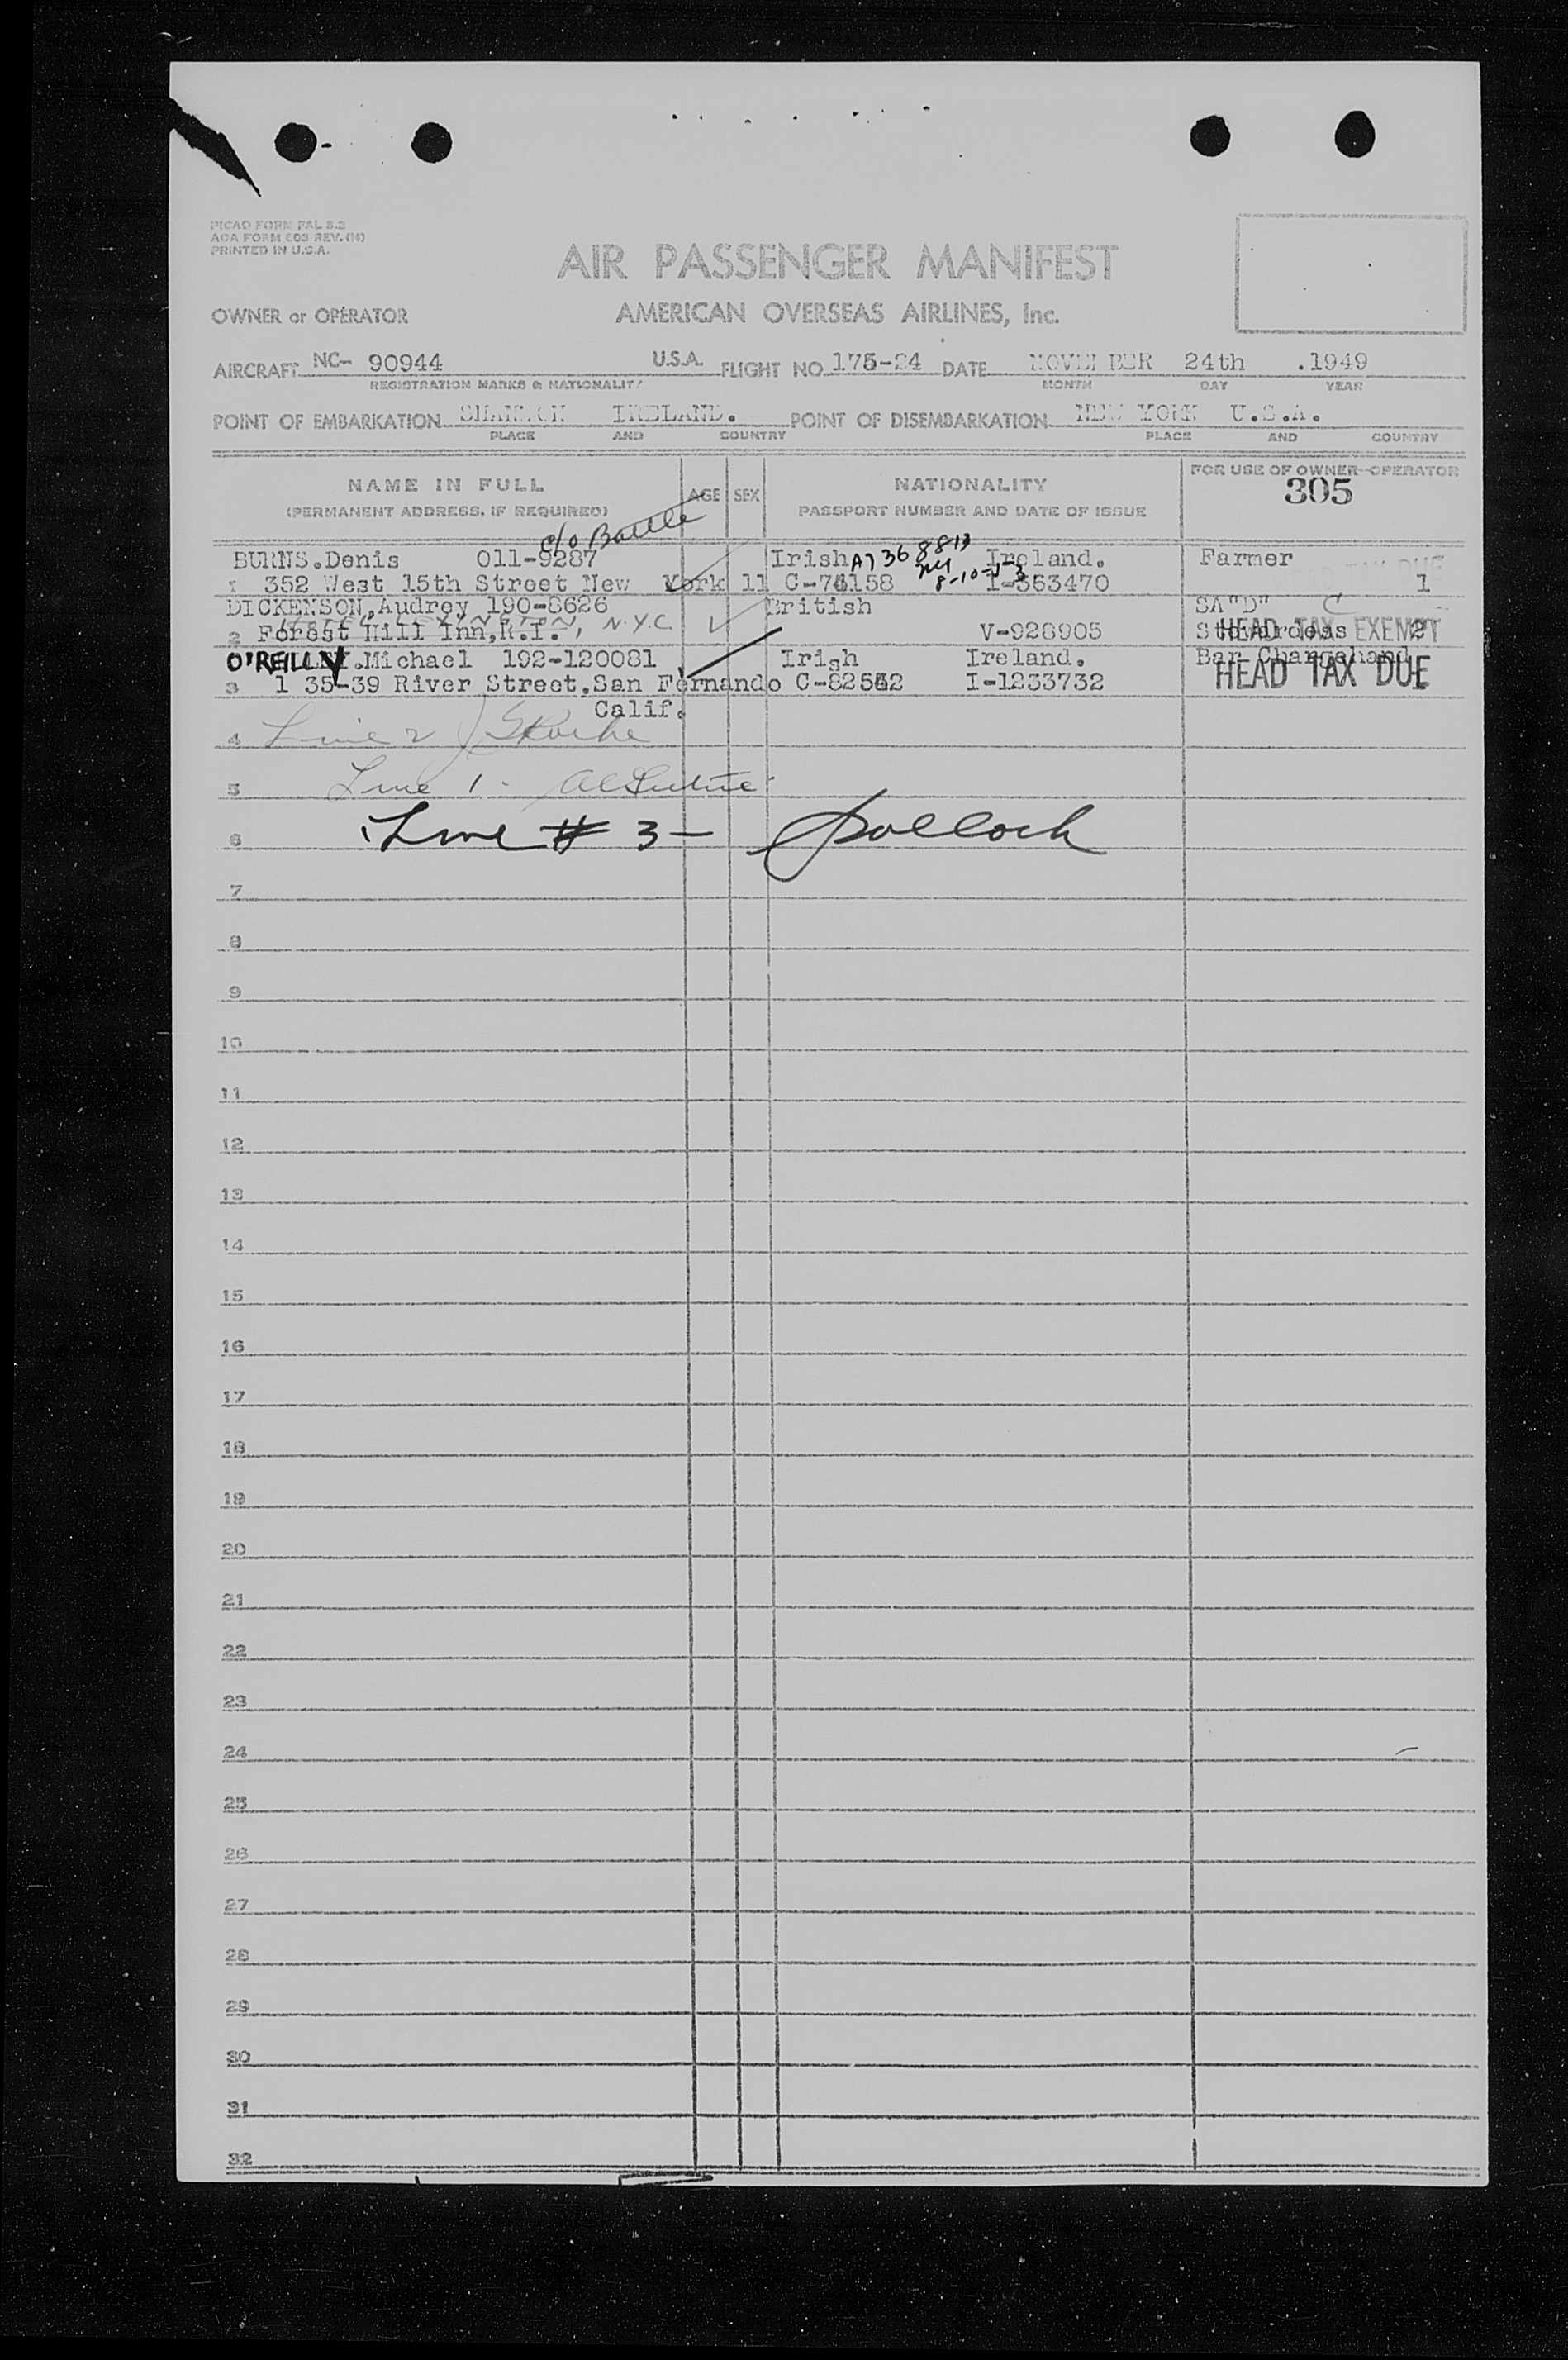 PICAO FORM PAL S.2
ACA FORM 603 REV. (H)
PRINTED IN U.S.A.
AIR PASSENGER MANIFEST
OWNER or OPERATOR
AMERICAN OVERSEAS AIRLINES, Inc.
AIRCRAFT NC- 90944 U.S.A. FLIGHT NO. 175-24 DATE NOVEMBER 24th .1949
REGISTRATION MARKS & NATIONALITY MONTH DAY YEAR
POINT OF EMBARKATION SHANNON IRELAND. POINT OF DISEMBARKATION NEW YORK U.S.A.
PLACE AND COUNTRY PLACE AND COUNTRY
NAME IN FULL AGE SEX NATIONALITY FOR USE OF OWNER-OPERATOR
(PERMANENT ADDRESS, IF REQUIRED) PASSPORT NUMBER AND DATE OF ISSUE 305
c/o Battle
BURNS.Denis 011-9287 Irish Ireland. Farmer
1 352 West 15th Street New York 11 I-363470 1
DICKENSON,Audrey 190-8626 British SA"D" C
HOTEL LEXINGTON, N.Y.C.
2 Forest Hill Inn, V-928905 Stewardess HEAD TAX EXEMPT 2
O'REILLY.Michael 192-120081 Irish Ireland. Bar Chargehand
3 1 35-39 River Street.San Fernando I-1233732 HEAD TAX DUE
Calif.
4 Line 2
5 Line 1 -
6 Line # 3 - Pollock
7
8
9
10
11
12
13
14
15
16
17
18
19
20
21
22
23
24
25
26
27
28
29
30
31
32